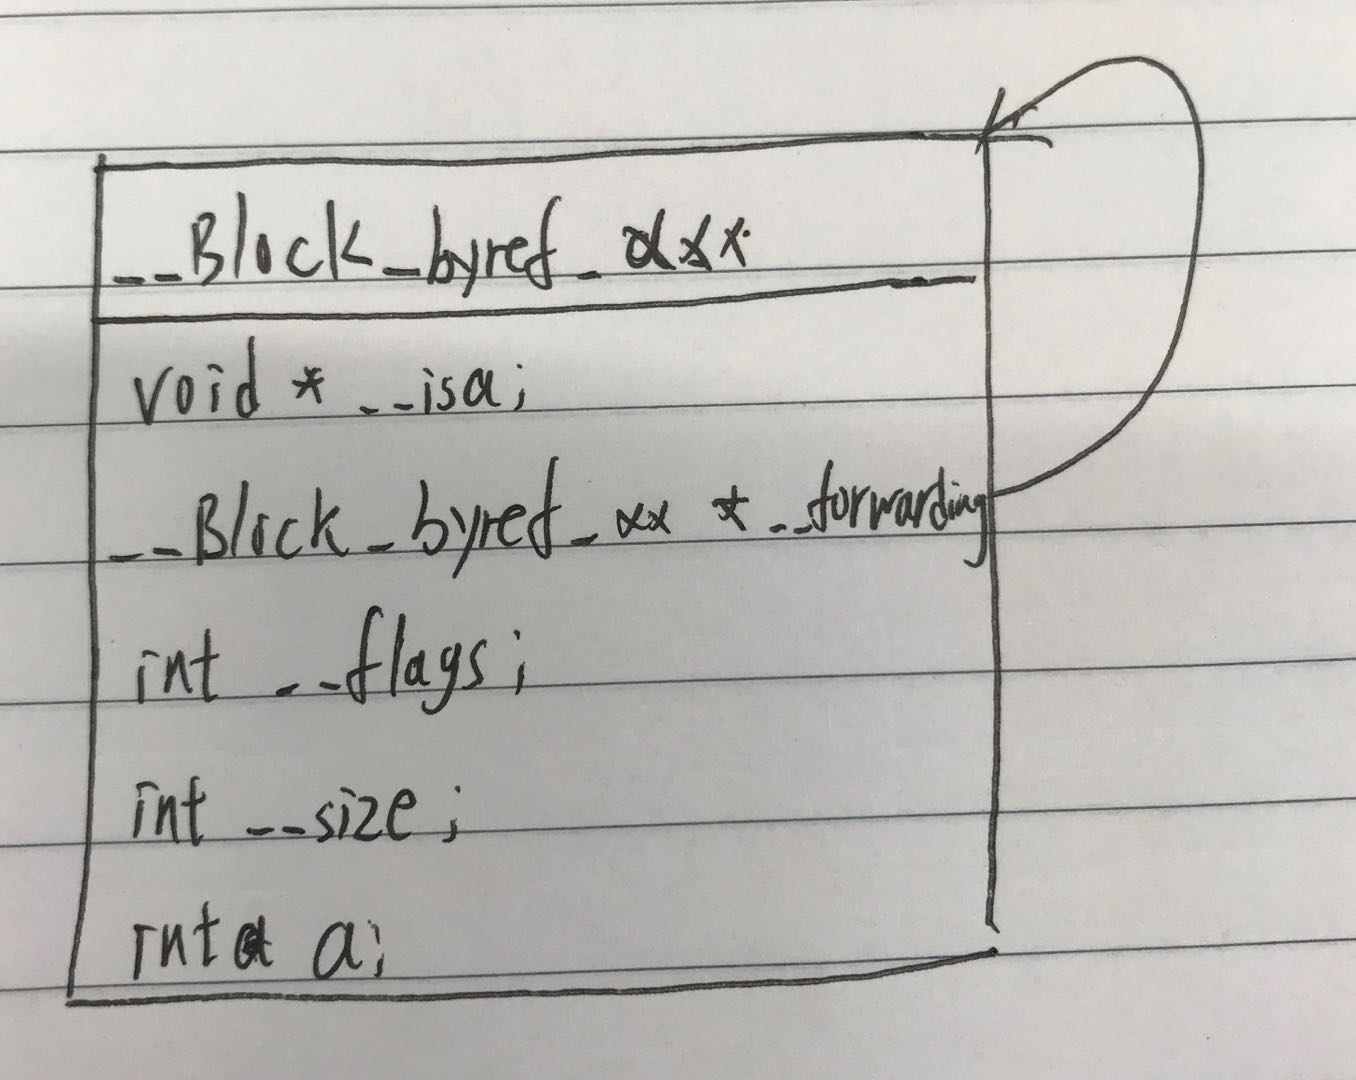 __Block_byref_xxx
void * __isa;
__Block_byref_xx * __forwarding
int __flags;
int __size;
int a;